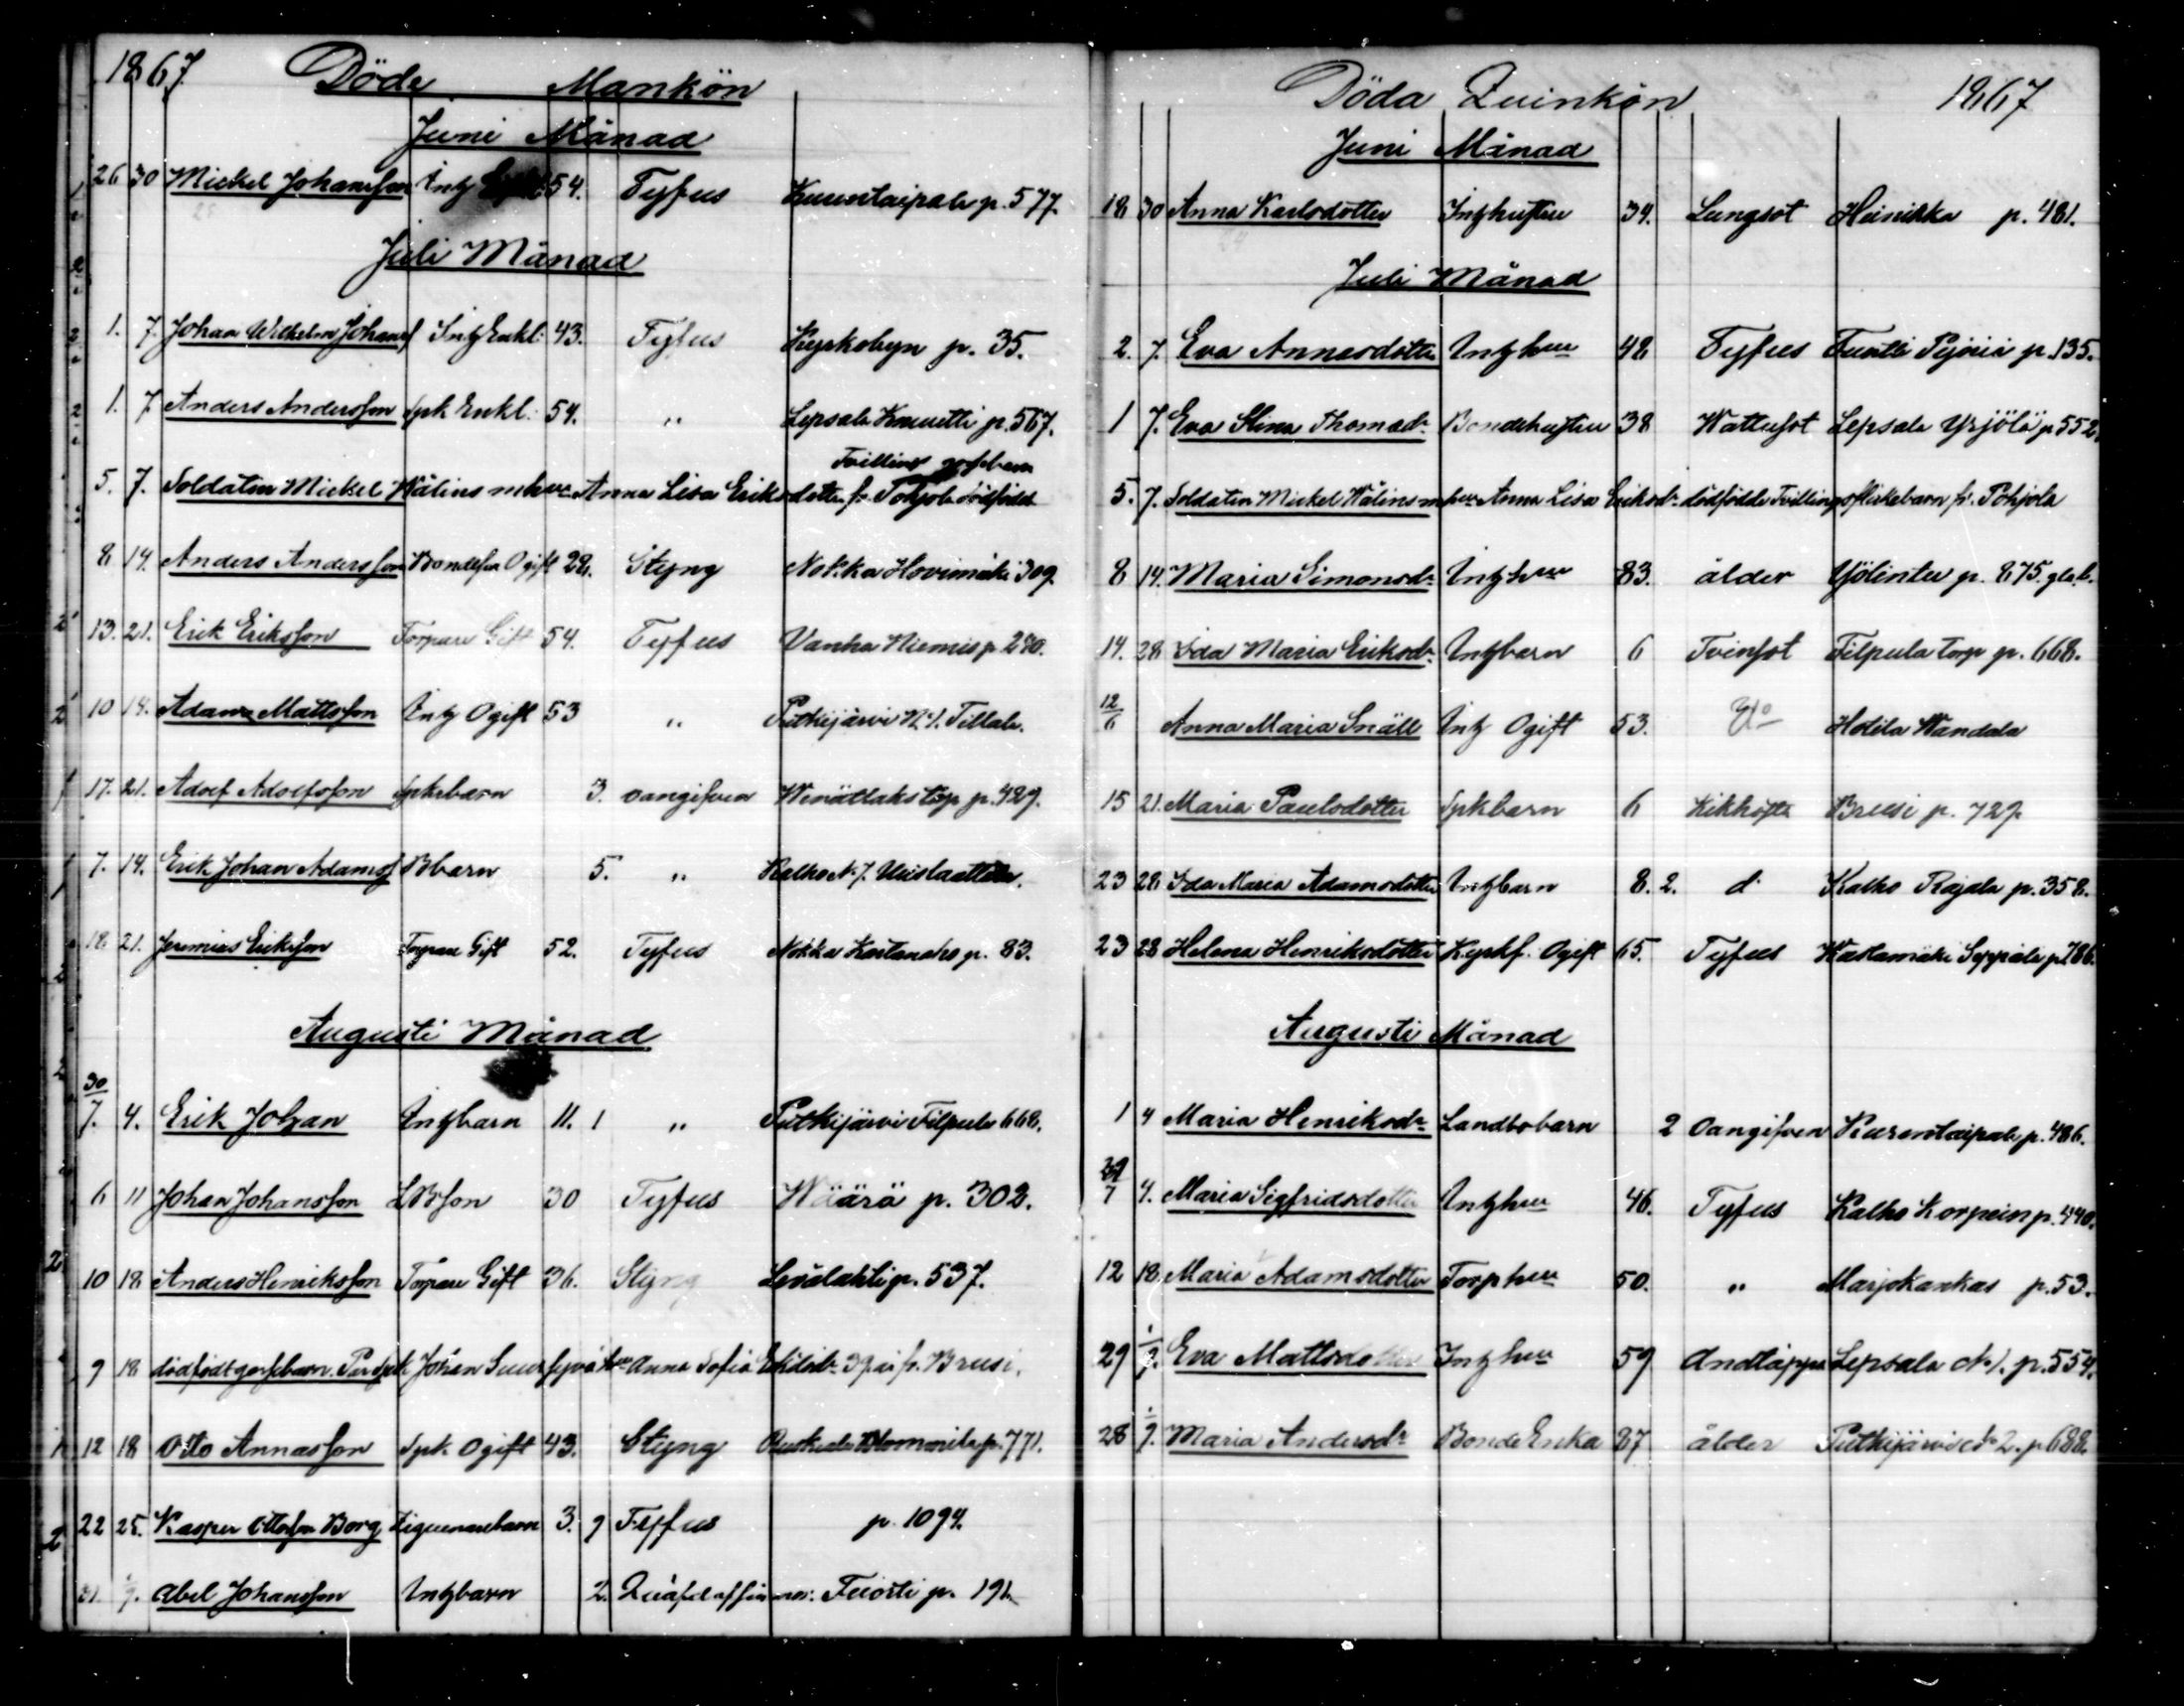 1867. Döde Mankön
Juni Månad
26 30 Mickel Johansson Inh 54. Tyfus Kuuentaipale p. 577.
Juli Månad
1. 7. Johan Wilhelm Johans Inh Enkl: 43. Tyfus Kyrkobyn p. 35.
1. 7 Anders Andersson Spk Enkl: 54. " Lepsala p. 567.
Tvilling gossebarn
5. 7. Soldaten Mickel Wålins m hu Anna Lisa Eriksdotter fr. Pohjola dödfödt
8 14. Anders Andersson Bondeson Ogift 28. Styng Nokka Hovimäki 309.
13. 21. Erik Eriksson Torpare Gift 54. Tyfus Vanha Niemis p 280.
10 14. Adam Mattsson Inh Ogift 53 " Putkijärvi N:1. Tillala.
17. 21. Adolf Adolfsson Spkbarn 3. oangifven torp p. 429.
7. 14. Erik Johan Adams Bbarn 5. " Kalho N:7.
18 21. Jeremias Eriksson Torpare Gift 52. Tyfus Nokka Kartanaho p. 83.
Augusti Månad
30/7. 4. Erik Johan Inhbarn 11. 1 " Putkijärvi Filpula 668.
6 11 Johan Johansson LBson 30 Tyfus Wäärä p. 302.
10 18 Anders Henriksson Torpare Gift 36. Styng Levälahti p. 537.
9 18 dödfödt gossebarn. Johan hu Anna Sofia 39 år fr. Brusi.
12 18 Otto Annasson Spk Ogift 43. Styng p. 771.
22 25. Kasper Ottoson Borg Ziguenarebarn 3. 9 Tyfus p. 1094.
31. 1/9. Abel Johansson Inhbarn 2. Tuosti p. 191.
Döda Quinkön 1867
Juni Månad
18 30 Anna Karlsdotter Inhhustru 34. Lungsot Heinikka p. 481.
Juli Månad
2. 7. Eva Annasdotter Inhhu 48 Tyfus Tuosti p. 135.
1 7. Eva Stina Thomasdr Bondehustru 38 Wattusot Lepsala Yrjölä p 552.
5. 7. Soldaten Mickel Wålins m hu Anna Lisa Eriksdr dödfödde Tvillingsflickebarn fr. Pohjola
8 14. Maria Simonsdr Inhhu 83. ålder Ylöintu p. 875. gla. b.
14. 28 Ida Maria Eriksdr Inhbarn 6 Tvinsot Filpula torp p. 668.
12/6 Anna Maria Snäll Inh Ogift 53. Holila Wandala
15 21. Maria Paulsdotter Spkbarn 6 Kikhosta Brusi p. 729
23 28. Ida Maria Adamsdotter Inhbarn 8. 2. d Kalho Rajala p. 358.
23 28 Helena Henriksdotter Kyrkf. Ogift 65. Tyfus Waslamäki Seppälä p. 786.
Augusti Månad
1 4 Maria Henriksdr Landbobarn 2 Oangifven Kurentaipale p. 486.
/7 4. Maria Sigfridsdotter Inhhu 46. Tyfus Kalho Korpein p. 440.
12 18. Maria Adamsdotter Torphu 50. " Marjokankas p. 53.
29 1/9. Eva Mattsdotter Inhhu 59 Andtäppa Lepsala No 1. p. 554.
28 1/9. Maria Andersdr Bonde Enka 87 ålder Putkijärvi No 2. p 688.